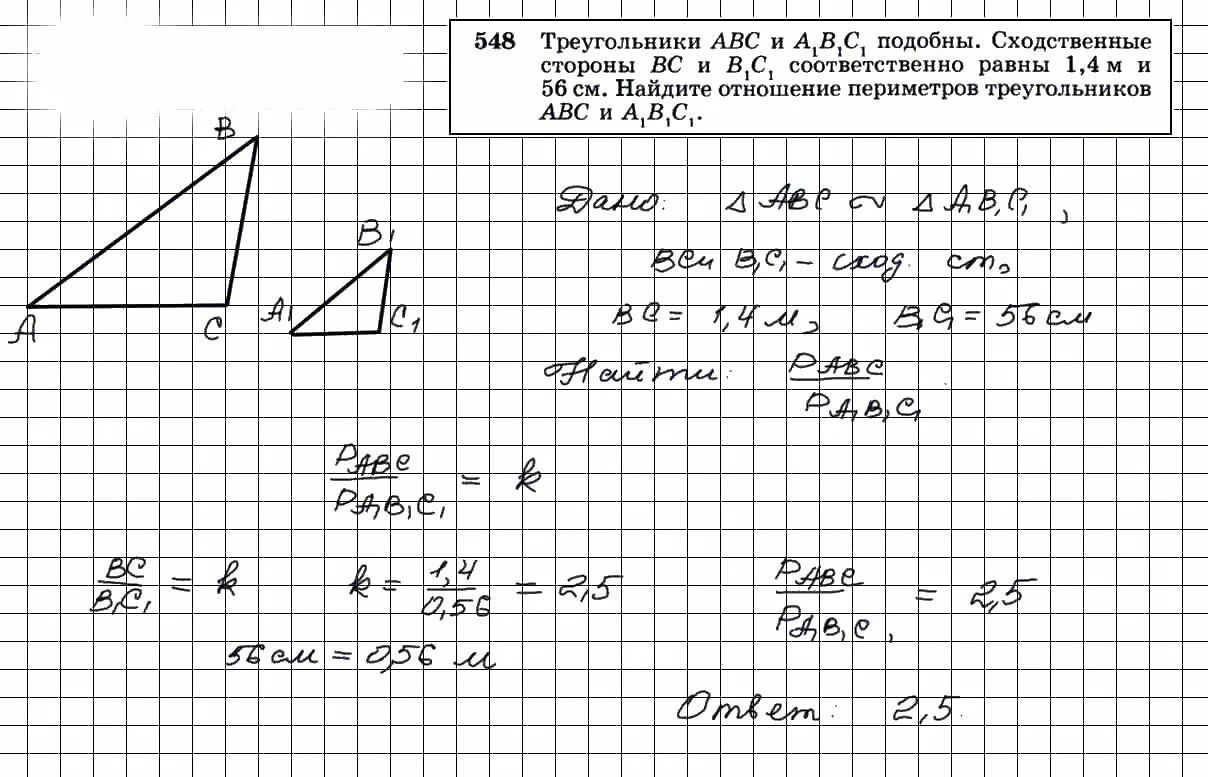 548 Треугольники ABC и A₁B₁C₁ подобны. Сходственные
стороны BC и B₁C₁ соответственно равны 1,4 м и
56 см. Найдите отношение периметров треугольников
ABC и A₁B₁C₁.
B
A
C
B₁
A₁
C₁
Дано: △ ABC ∼ △ A₁B₁C₁,
BC и B₁C₁ – сход. ст,
BC = 1,4 м, B₁C₁ = 56 см
Найти: P ABC / P A₁B₁C₁
P ABC / P A₁B₁C₁ = k
BC / B₁C₁ = k k = 1,4 / 0,56 = 2,5 P ABC / P A₁B₁C₁ = 2,5
56 см = 0,56 м
Ответ: 2,5.